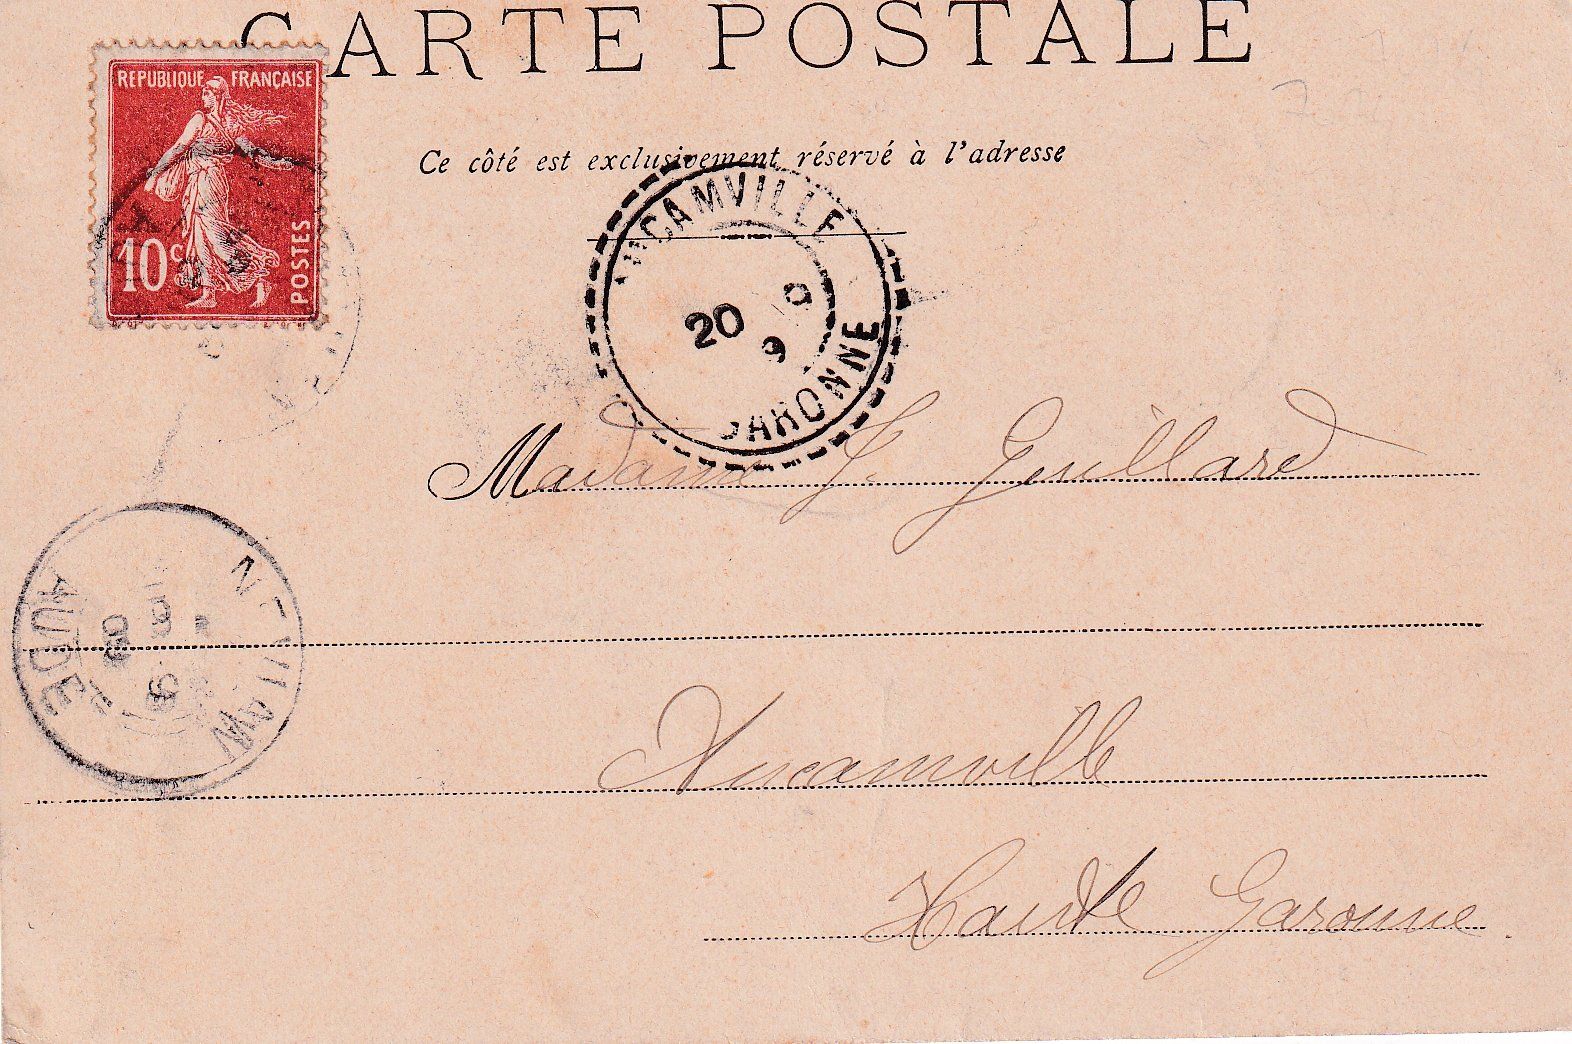 CARTE POSTALE
REPUBLIQUE FRANÇAISE
10c
POSTES
Ce côté est exclusivement réservé à l'adresse
AUCAMVILLE
20 9
GARONNE
Madame J. Guillard
AUDE
Aucamville
Haute Garonne